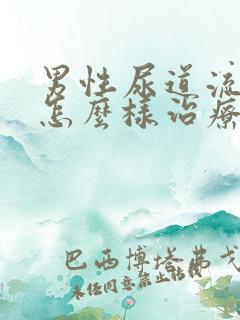 男性尿道流
怎麼樣治療
巴西博塔弗戈
未任同意禁止转载